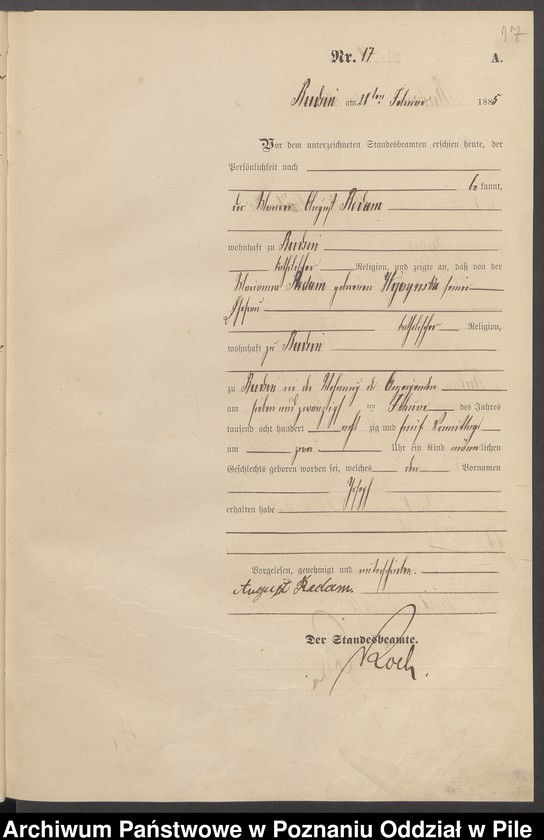 17
Nr. 17 A.
am 28ten Februar 1885
Vor dem unterzeichneten Standesbeamten erschien heute, der
Persönlichkeit nach
be kannt,
der August Redam
wohnhaft zu
katholischer Religion, und zeigte an, daß von der
Redam geborenen seiner
Ehefrau
katholischer Religion,
wohnhaft zu
zu in der Wohnung des Anzeigenden
am sieben und zwanzigsten Februar des Jahres
tausend acht hundert acht zig und fünf Vormittags
um zwei Uhr ein Kind männ lichen
Geschlechts geboren worden sei, welches den Vornamen
Joseph
erhalten habe
Vorgelesen, genehmigt und unterschrieben.
August Redam.
Der Standesbeamte.
Koch.
Archiwum Państwowe w Poznaniu Oddział w Pile